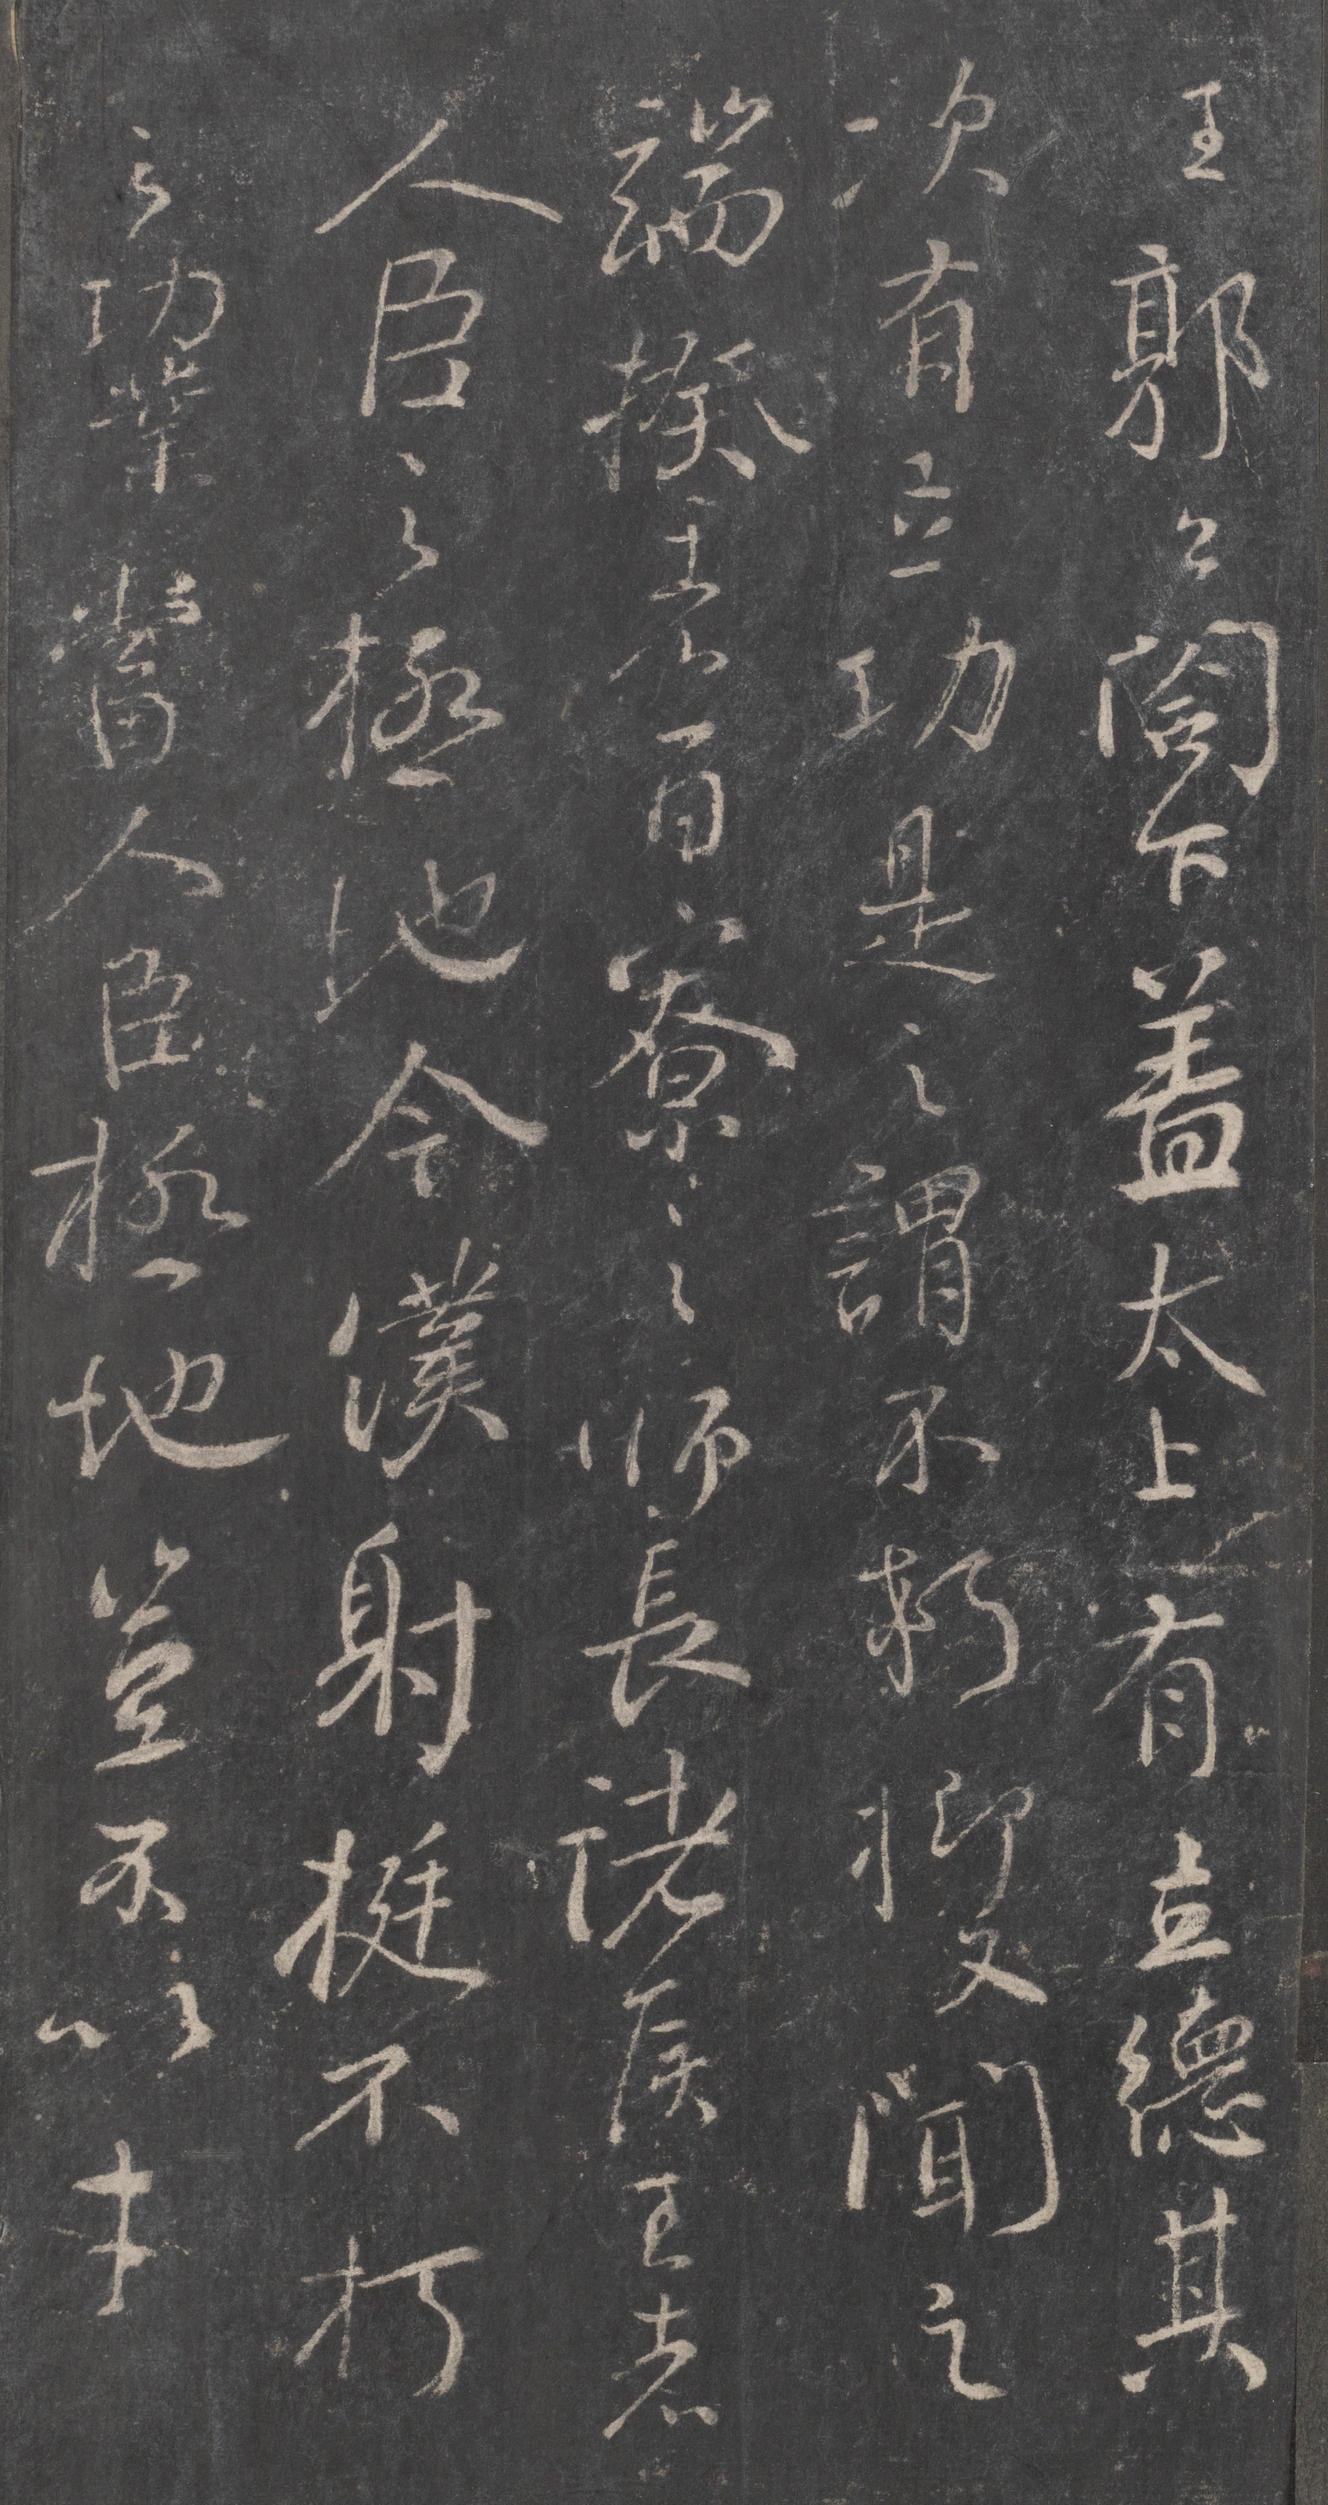 王郭公閤下蓋太上有立德其
次有立功是之謂不朽抑又聞之
端揆者百寮之師長諸侯王者
人臣之極地今僕射挺不朽
之功業當人臣極地豈不以才